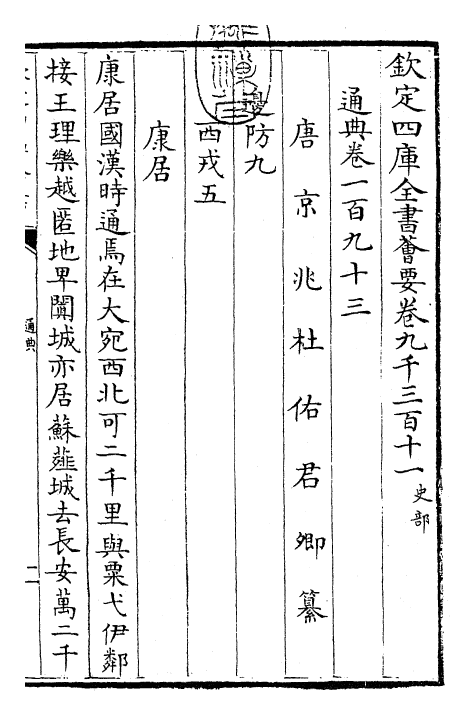 欽定四庫全書薈要卷九千三百十一 史部
通典卷一百九十三
唐京兆杜佑君卿纂
邊防九
西戎五
康居
康居國漢時通焉在大宛西北可二千里與粟弋伊鄰
接王理樂越匿地卑闐城亦居蘇薤城去長安萬二千
通典